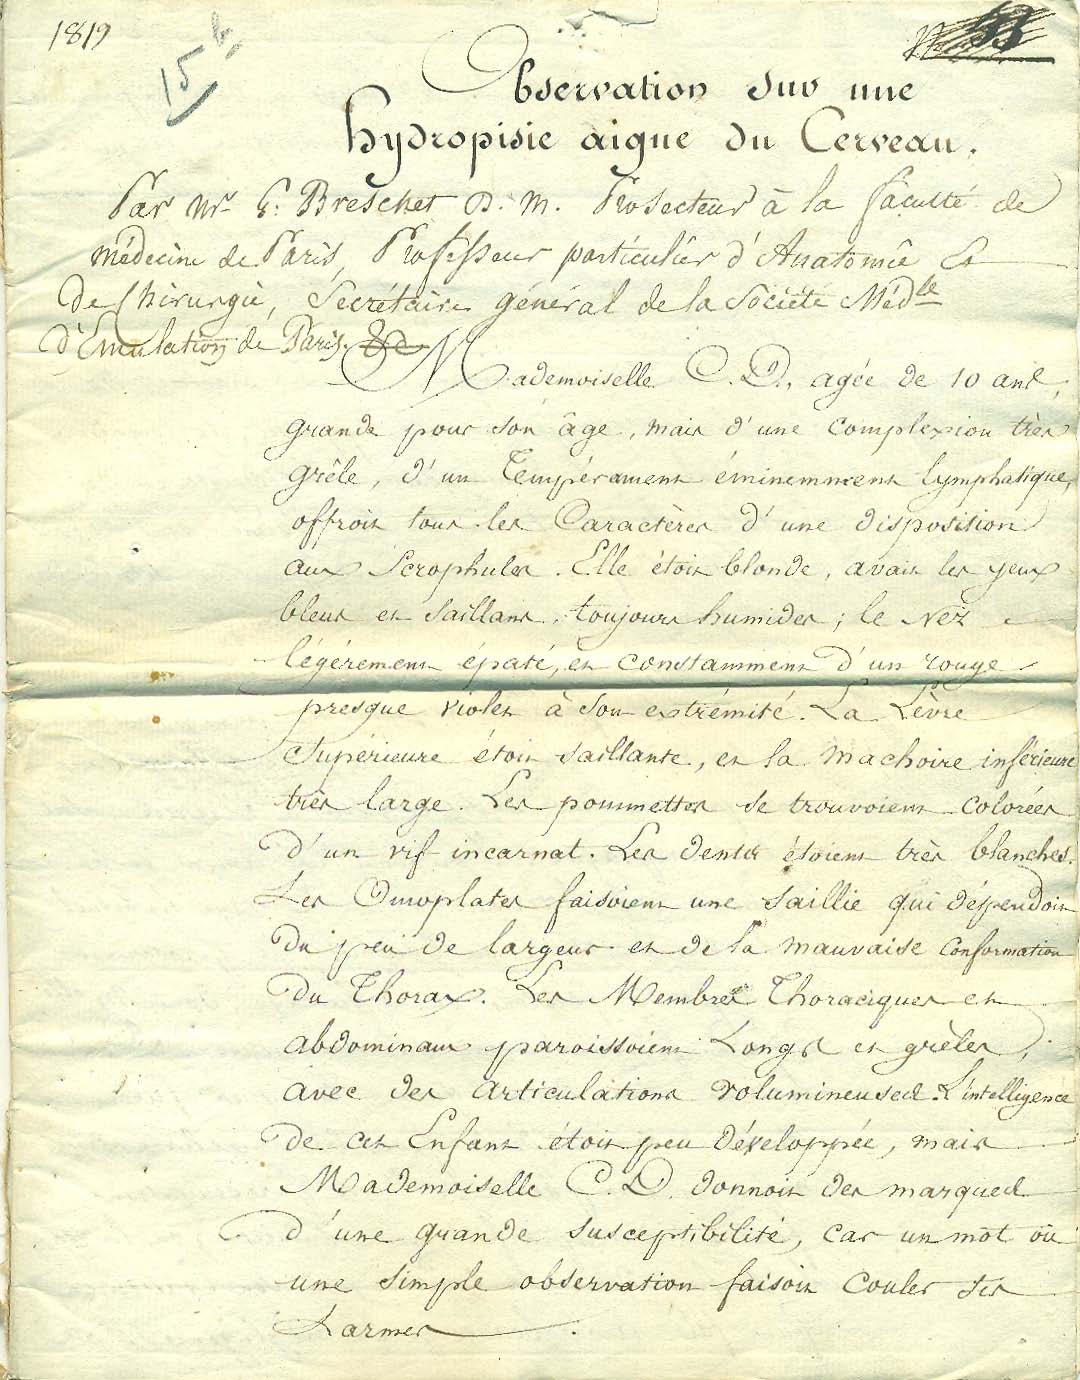 1819
15
Observation sur une
hydropisie aigue du Cerveau.
Par Mr. G. Breschet D. M. Prosecteur à la faculté de
médecine de Paris, Professeur particulier d'Anatomie &
de Chirurgie, Secrétaire général de la Société Médle
d'Emulation de Paris. &c
Mademoiselle C. D., agée de 10 ans,
grande pour son âge, mais d'une complexion très
grêle, d'un Tempérament éminemment lymphatique,
offroit tous les Caractères d'une disposition
aux Scrophules. Elle étoit blonde, avait les yeux
bleus et saillans, toujours humides; le Nez
légérement épaté, et constamment d'un rouge
presque violet à son extrémité. La Lèvre
Supérieure étoit saillante, et la machoire inférieure
très large. Les pommettes se trouvoient colorées
d'un vif incarnat. Les dents étoient très blanches.
Les Omoplates faisoient une saillie qui dépendoit
du peu de largeur et de la mauvaise Conformation
du Thorax. Les Membres Thoraciques et
abdominaux paroissoient Longs et grèles,
avec des articulations volumineuses. L'intelligence
de cet Enfant étoit peu développée, mais
Mademoiselle C. D. donnoit des marques
d'une grande susceptibilité, car un mot où
une simple observation faisoit couler ses
Larmes.